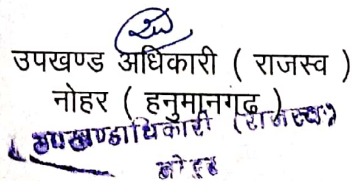 उपखण्ड अधिकारी ( राजस्व )
नोहर ( हनुमानगढ़ )
उपखण्डाधिकारी (राजस्व)
नोहर